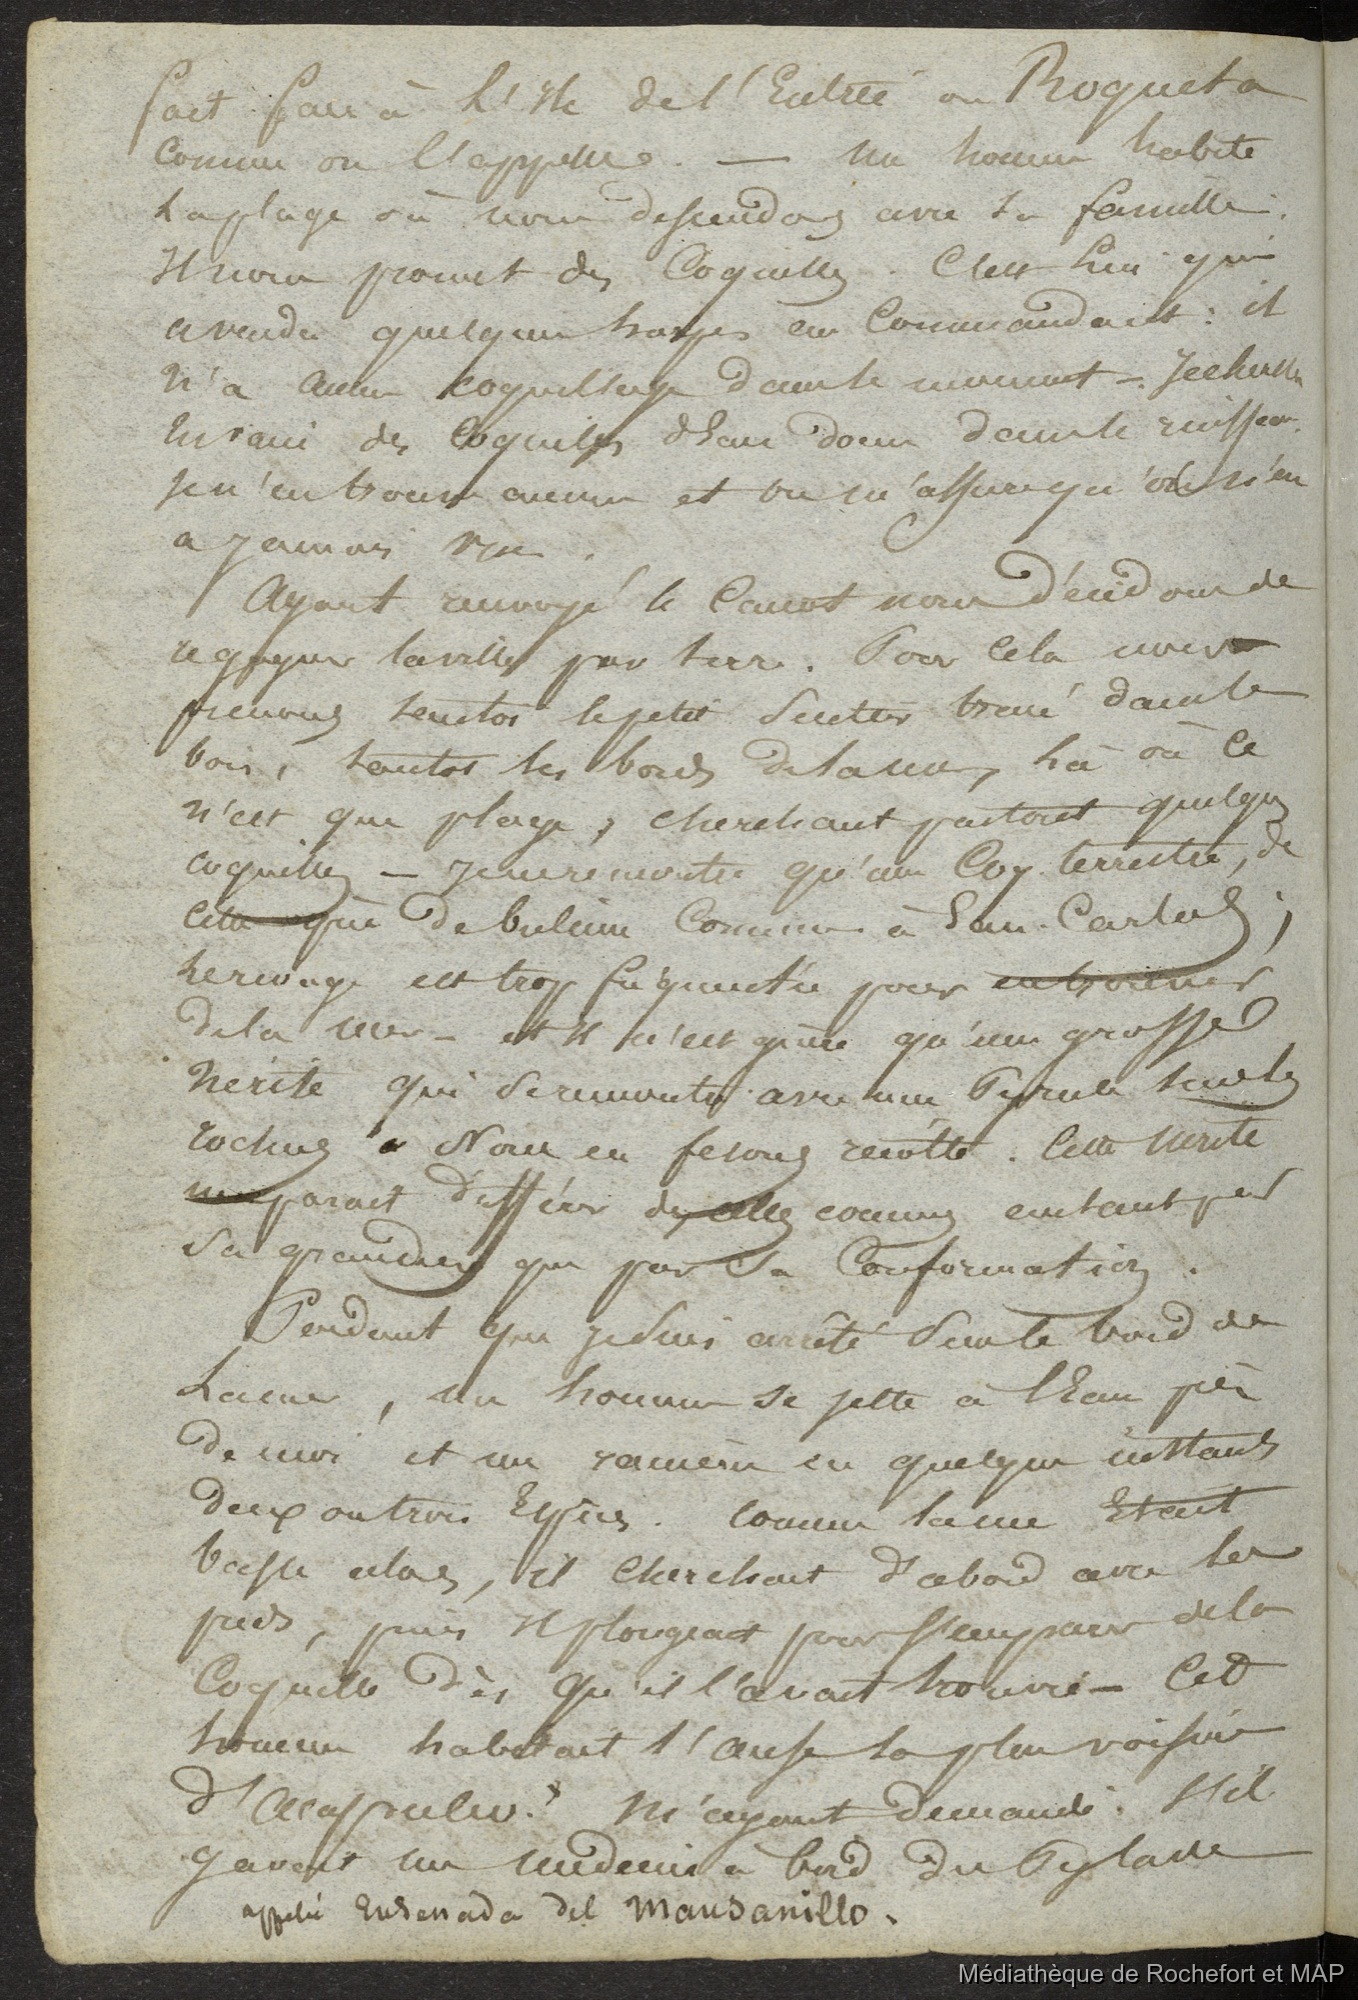 fait face à L'Ile de l'Entrée ou Roqueta
comme on l'appelle. — un homme habite
La plage où nous descendons avec sa famille.
Il nous promet des Coquilles. C'est lui qui
a vendu quelques harpes au Commandant : il
n'a aucun coquillage dans le moment —. Je cherche
en vain des Coquilles d'Eau douce dans le ruisseau.
Je n'en trouve aucune et on m'assure qu'on n'en
a jamais vu.
Ayant renvoyé le Canot nous décidons de
regagner la ville par terre. Pour cela nous
prenons tantôt le petit sentier tracé dans le
bois, tantôt les bords de la mer, là où ce
n'est que plage, cherchant partout quelques
coquilles — Je ne rencontre qu'une Coq. terrestre, de
cette que de bulime Commun à San-Carlos ;
le rivage est trop fréquentée pour en trouver
de la mer — et il n'est guère qu'une grosse
Nérite qui se rencontre avec une Pyrule sur les
rochers. Nous en fesons récolte. Cette nerite
me parait différer de celles connues autant par
sa grandeur que par sa Conformation.
Pendant que je suis arrêté sur le bord de
La mer, un homme se jette à l'Eau près
de moi et me ramène en quelques instants
deux ou trois Espèces. comme la mer Etait
basse alors, il cherchait d'abord avec les
pieds, puis il plongeait pour s'emparer de la
Coquille dès qu'il l'avait trouvé — Cet
homme habitait l'anse la plus voisine
d'Acapulco.* M'ayant demandé s'il
y avait un médecin à bord du Pylade
appelée Ensenada del Mansanillo.
Médiathèque de Rochefort et MAP